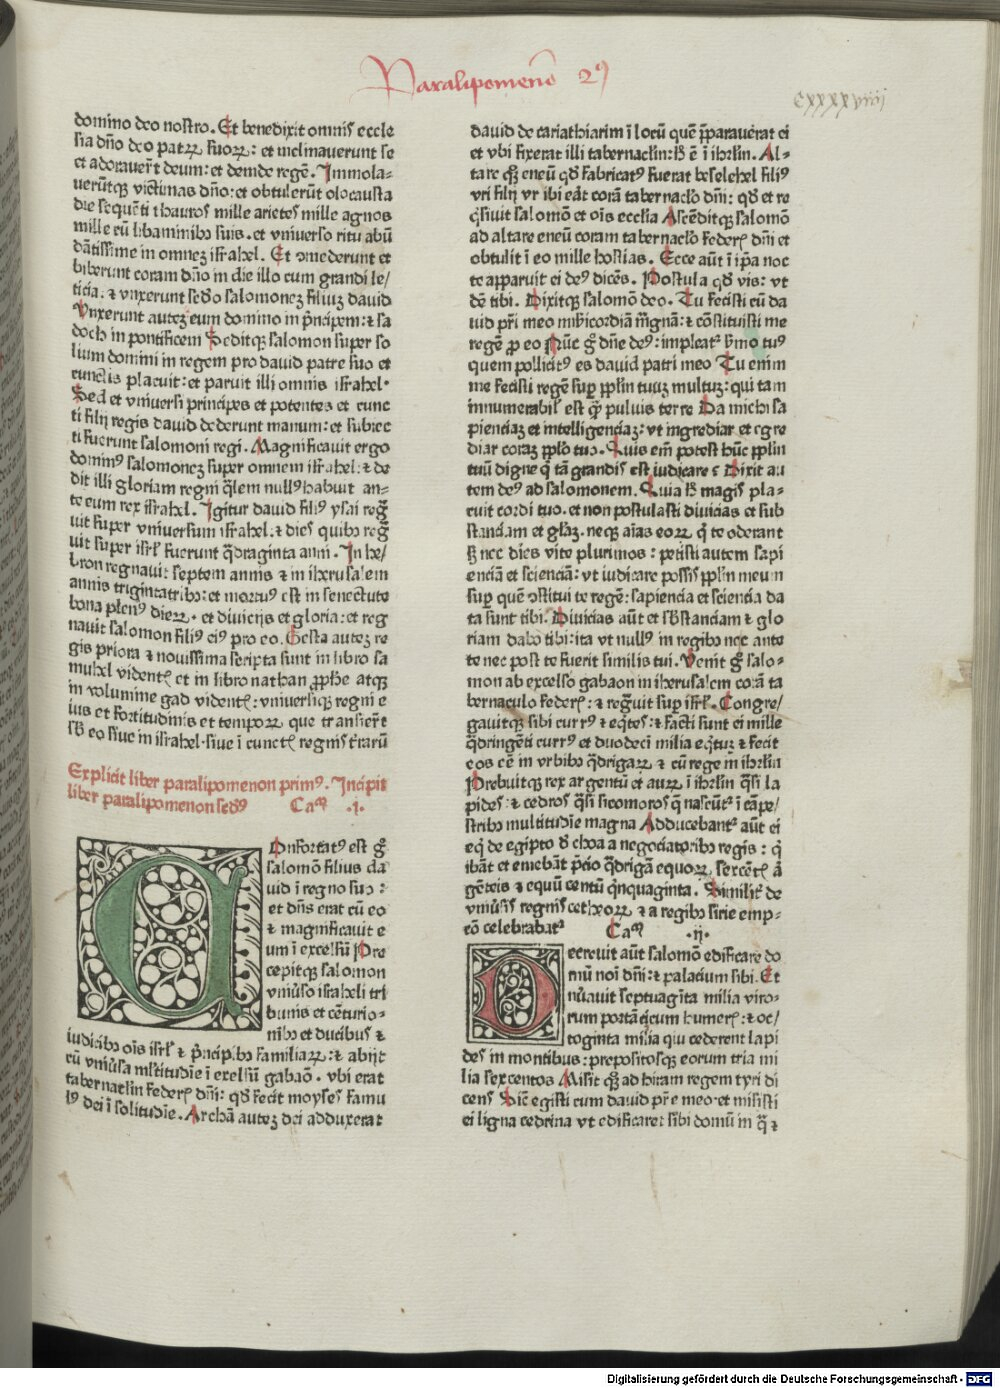 Paralipomenō 2ꝰ
cxxxxviiij
domino deo nostro. Et benedixit omnis eccle
sia dño deo patrꝝ suoꝝ: et inclinauerunt se
et adorauer̄t deum: et deinde regē. Immola-
uerūtqꝫ victimas dño: et obtulerūt olocausta
die sequēti thauros mille arietes mille agnos
mille cū libaminibꝰ suis. et vniuerso ritu abū
dātissime in omneꝫ israhel. Et ꝯmederunt et
biberunt coram dño in die illo cum grandi le/
ticia. ⁊ vnxerunt sedo salomoneꝫ filiuꝫ dauid
Vnxerunt auteꝫ eum domino in p̄ncipem: ⁊ sa
doch in pontificem Seditqꝫ salomon super so
lium domini in regem pro dauid patre suo et
cunctis placuit: et paruit illi omnis israhel.
Sed et vniuersi principes et potentes et cunc
ti filij regis dauid dederunt manum: et subiec
ti fuerunt salomoni regi. Magnificauit ergo
dominꝰ salomoneꝫ super omnem israhel: ⁊ de
dit illi gloriam regni q̄lem nullꝰ habuit an-
te eum rex israhel. Igitur dauid filiꝰ ysai reḡ
uit super vniuersum israhel: ⁊ dies quibꝰ reḡ
uit super isrl̄ fuerunt q̄draginta anni. In he/
bron regnauit septem annis ⁊ in iherusalem
annis trigintatribꝰ: et mortuꝰ est in senectute
bona plenꝰ dieꝝ. et diuicijs et gloria: et reg
nauit salomon filiꝰ eiꝰ pro eo. Gesta auteꝫ re
gis priora ⁊ nouissima scripta sunt in libro sa
muhel videntꝭ et in libro nathan ꝓphe atqꝫ
in volumine gad videntꝭ: vniuersiqꝫ regni e
ius et fortitudinis et tempoꝝ que transier̄t
sb̄ eo siue in israhel siue ī cunctꝭ regnis t̄rarū
Explicit liber paralipomenon primꝰ. Incipit
liber paralipomenon scds̄ Caᵐ .i.
COnfortatꝰ est g̊
salomō filius da
uid ī regno suo:
et dn̄s erat cū eo
⁊ magnificauit e
um ī excelsū Pre
cepitqꝫ salomon
vniūso israheli tri
bunis et cēturio-
nibꝰ et ducibus ⁊
iudicibꝰ oīs isrl̄ ⁊ p̄ncipibꝰ familiaꝝ: ⁊ abijt
cū vniūsa ml̄titudīe ī exelsū gabaō. vbi erat
tabernacl̄m federꝭ dn̄i: qd̄ fecit moyses famu
lꝰ dei ī solitudīe. Archā auteꝫ dei adduxerat
dauid de cariathiarim ī locū quē p̄parauerat ei
et vbi fixerat illi tabernacl̄m: hͦ ē ī ihrl̄m. Al-
tare qꝫ eneū qd̄ fabricatꝰ fuerat beselehel filiꝰ
vri filij vr ibi erāt corā tabernacl̄o dn̄i: qd̄ et re
q̄siuit salomō et oīs ecclīa Ascēditqꝫ salomō
ad altare eneū coram tabernacl̄o federꝭ dn̄i et
obtulit ī eo mille hostias. Ecce aūt ī ip̄a noc
te apparuit ei deꝰ dicēs. Postula qd̄ vis: vt
dē tibi. Dixitqꝫ salomō deo. Tu fecisti cū da
uid pr̄i meo mīs̄icordiā m̄gnā: ⁊ cōstituisti me
regē ꝓ eo Nūc g̊ dn̄e deꝰ: impleatᷣ s̄mo tuꝰ
quem pollicitꝰ es dauid patri meo Tu enim
me fecisti regē sup̄ ppl̄m tuuꝫ multuꝫ: qui tam
innumerabilꝭ est q̄ꝫ puluis terre Da michi sa
pienciaꝫ et intelligenciaꝫ: vt ingrediar et egre
diar coraꝫ ppl̄o tuo. Quis em̄ potest hūc ppl̄m
tuū digne q̄ tā grandis est iudicare? Dixit au
tem deꝰ ad salomonem. Quia hͦ magis pla-
cuit cordi tuo. et non postulasti diuicias et sub
stanciam et gl̄iaꝫ. neqꝫ aīas eoꝝ q̄ te oderant
sꝫ nec dies vite plurimos: petisti autem sapi
enciā et scienciā: vt iudicare possis ppl̄m meum
sup̄ quē ꝯstitui te regē: sapiencia et sciencia da
ta sunt tibi. Diuicias aūt et sb̄stanciam ⁊ glo
riam dabo tibi: ita vt nullꝰ in regibꝰ nec ante
te nec post te fuerit similis tui. Venit g̊ salo-
mon ab excelso gabaon in iherusalem corā ta
bernaculo federꝭ: ⁊ reḡuit sup̄ isrl̄. Congre/
gauitqꝫ sibi currꝰ ⁊ eq̄tes: ⁊ facti sunt ei mille
q̄dringēti currꝰ et duodecī milia eq̄tuꝫ ⁊ fecit
eos eē in vrbibꝰ q̄drigaꝝ ⁊ cū rege in ihrl̄m
Prebuitqꝫ rex argentū et auꝝ ī ihrl̄m q̄si la
pides: ⁊ cedros q̄si sicomoros q̄ nascūtᷣ ī cāpe/
stribꝰ multitudīe magna Adducebantᷣ aūt ei
eq̄ de egipto ⁊ choa a negociatoribꝰ regis: q̄
ibāt et emebāt p̄cio q̄drigā equoꝝ sexcētꝭ ar
gēteis ⁊ equū centū q̄nquaginta. Similit̄ de
vniūsis regnis cetheoꝝ ⁊ a regibꝰ sirie emp-
cō celebrabatᷣ Caᵐ .ij.
DEcreuit aūt salomō edificare do
mū noī dn̄i: ⁊ palacium sibi. Et
nūauit septuagīta milia viro-
rum portāciū humerꝭ: ⁊ oc/
toginta milia qui cederent lapi
des in montibus: prepositosqꝫ eorum tria mi
lia sexcentos Misit qꝫ ad hiram regem tyri di
cens Sic̄ egisti cum dauid pr̄e meo et misisti
ei ligna cedrina vt edificaret sibi domū in q̄ ⁊
Digitalisierung gefördert durch die Deutsche Forschungsgemeinschaft - DFG